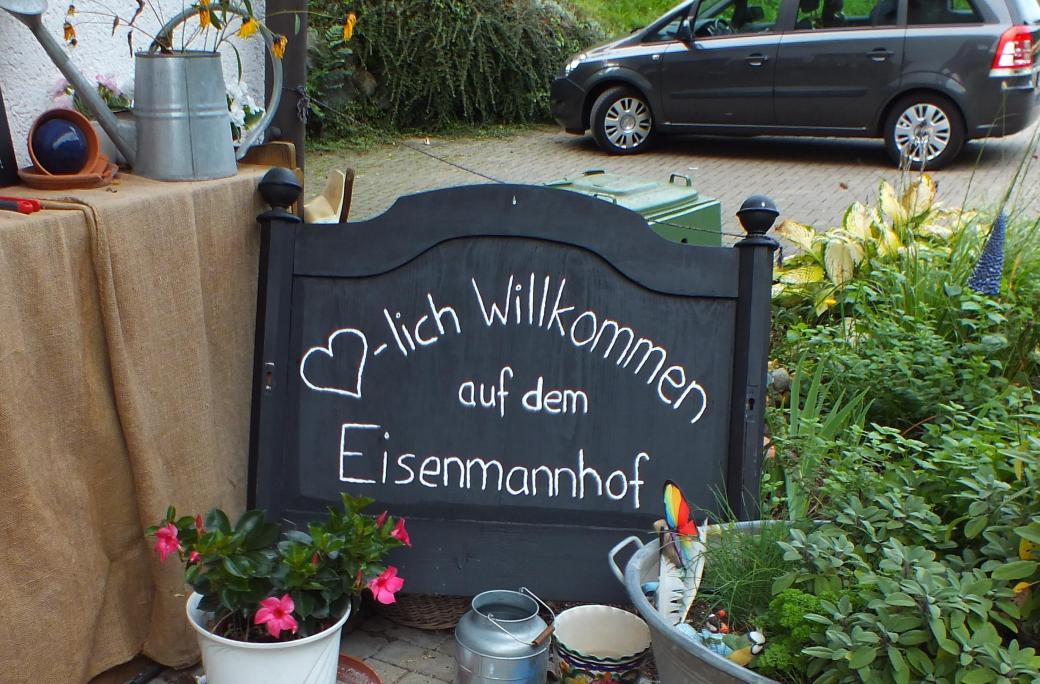 ♡-lich Willkommen
auf dem
Eisenmannhof